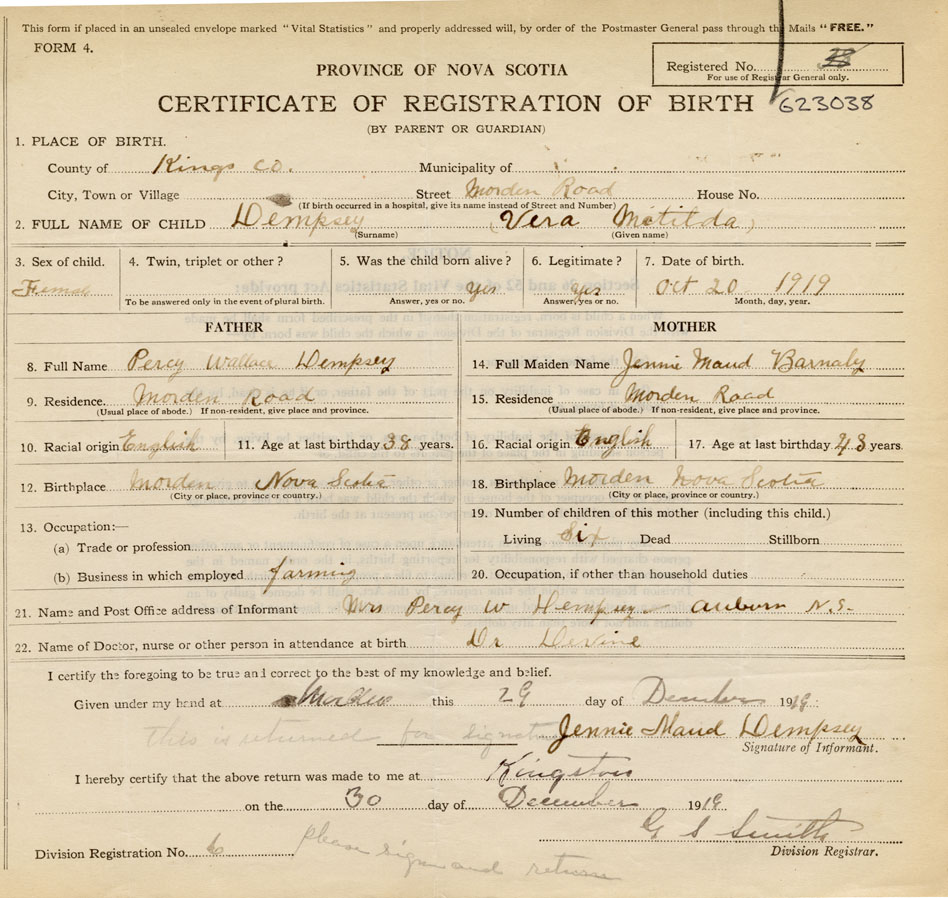 This form if placed in an unsealed envelope marked "Vital Statistics" and properly addressed will, by order of the Postmaster General pass through the Mails "FREE."
FORM 4.
Registered No.
For use of Registrar General only.
PROVINCE OF NOVA SCOTIA
CERTIFICATE OF REGISTRATION OF BIRTH 623038
(BY PARENT OR GUARDIAN)
1. PLACE OF BIRTH.
County of Kings Co. Municipality of
City, Town or Village Street Morden Road House No.
(If birth occurred in a hospital, give its name instead of Street and Number)
2. FULL NAME OF CHILD Dempsey (Vera Matilda)
(Surname) (Given name)
3. Sex of child. 4. Twin, triplet or other? 5. Was the child born alive? 6. Legitimate? 7. Date of birth.
Female yes yes Oct 20 1919
To be answered only in the event of plural birth. Answer, yes or no. Answer, yes or no. Month, day, year.
FATHER MOTHER
8. Full Name Percy Wallace Dempsey 14. Full Maiden Name Jennie Maud Barnaby
9. Residence. Morden Road 15. Residence Morden Road
(Usual place of abode.) If non-resident, give place and province. (Usual place of abode.) If non-resident, give place and province.
10. Racial origin English 11. Age at last birthday 38 years. 16. Racial origin English 17. Age at last birthday 43 years.
12. Birthplace Morden Nova Scotia 18. Birthplace Morden Nova Scotia
(City or place, province or country.) (City or place, province or country.)
13. Occupation:— 19. Number of children of this mother (including this child.)
(a) Trade or profession Living Six Dead Stillborn
(b) Business in which employed farming 20. Occupation, if other than household duties
21. Name and Post Office address of Informant Mrs Percy W Dempsey Auburn N.S.
22. Name of Doctor, nurse or other person in attendance at birth Dr Devine
I certify the foregoing to be true and correct to the best of my knowledge and belief.
Given under my hand at this 29 day of December 1919.
This is returned for signature Jennie Maud Dempsey
Signature of Informant.
I hereby certify that the above return was made to me at Kingston
on the 30 day of December 1919
G S Smith
Division Registration No. 6 please sign and return Division Registrar.